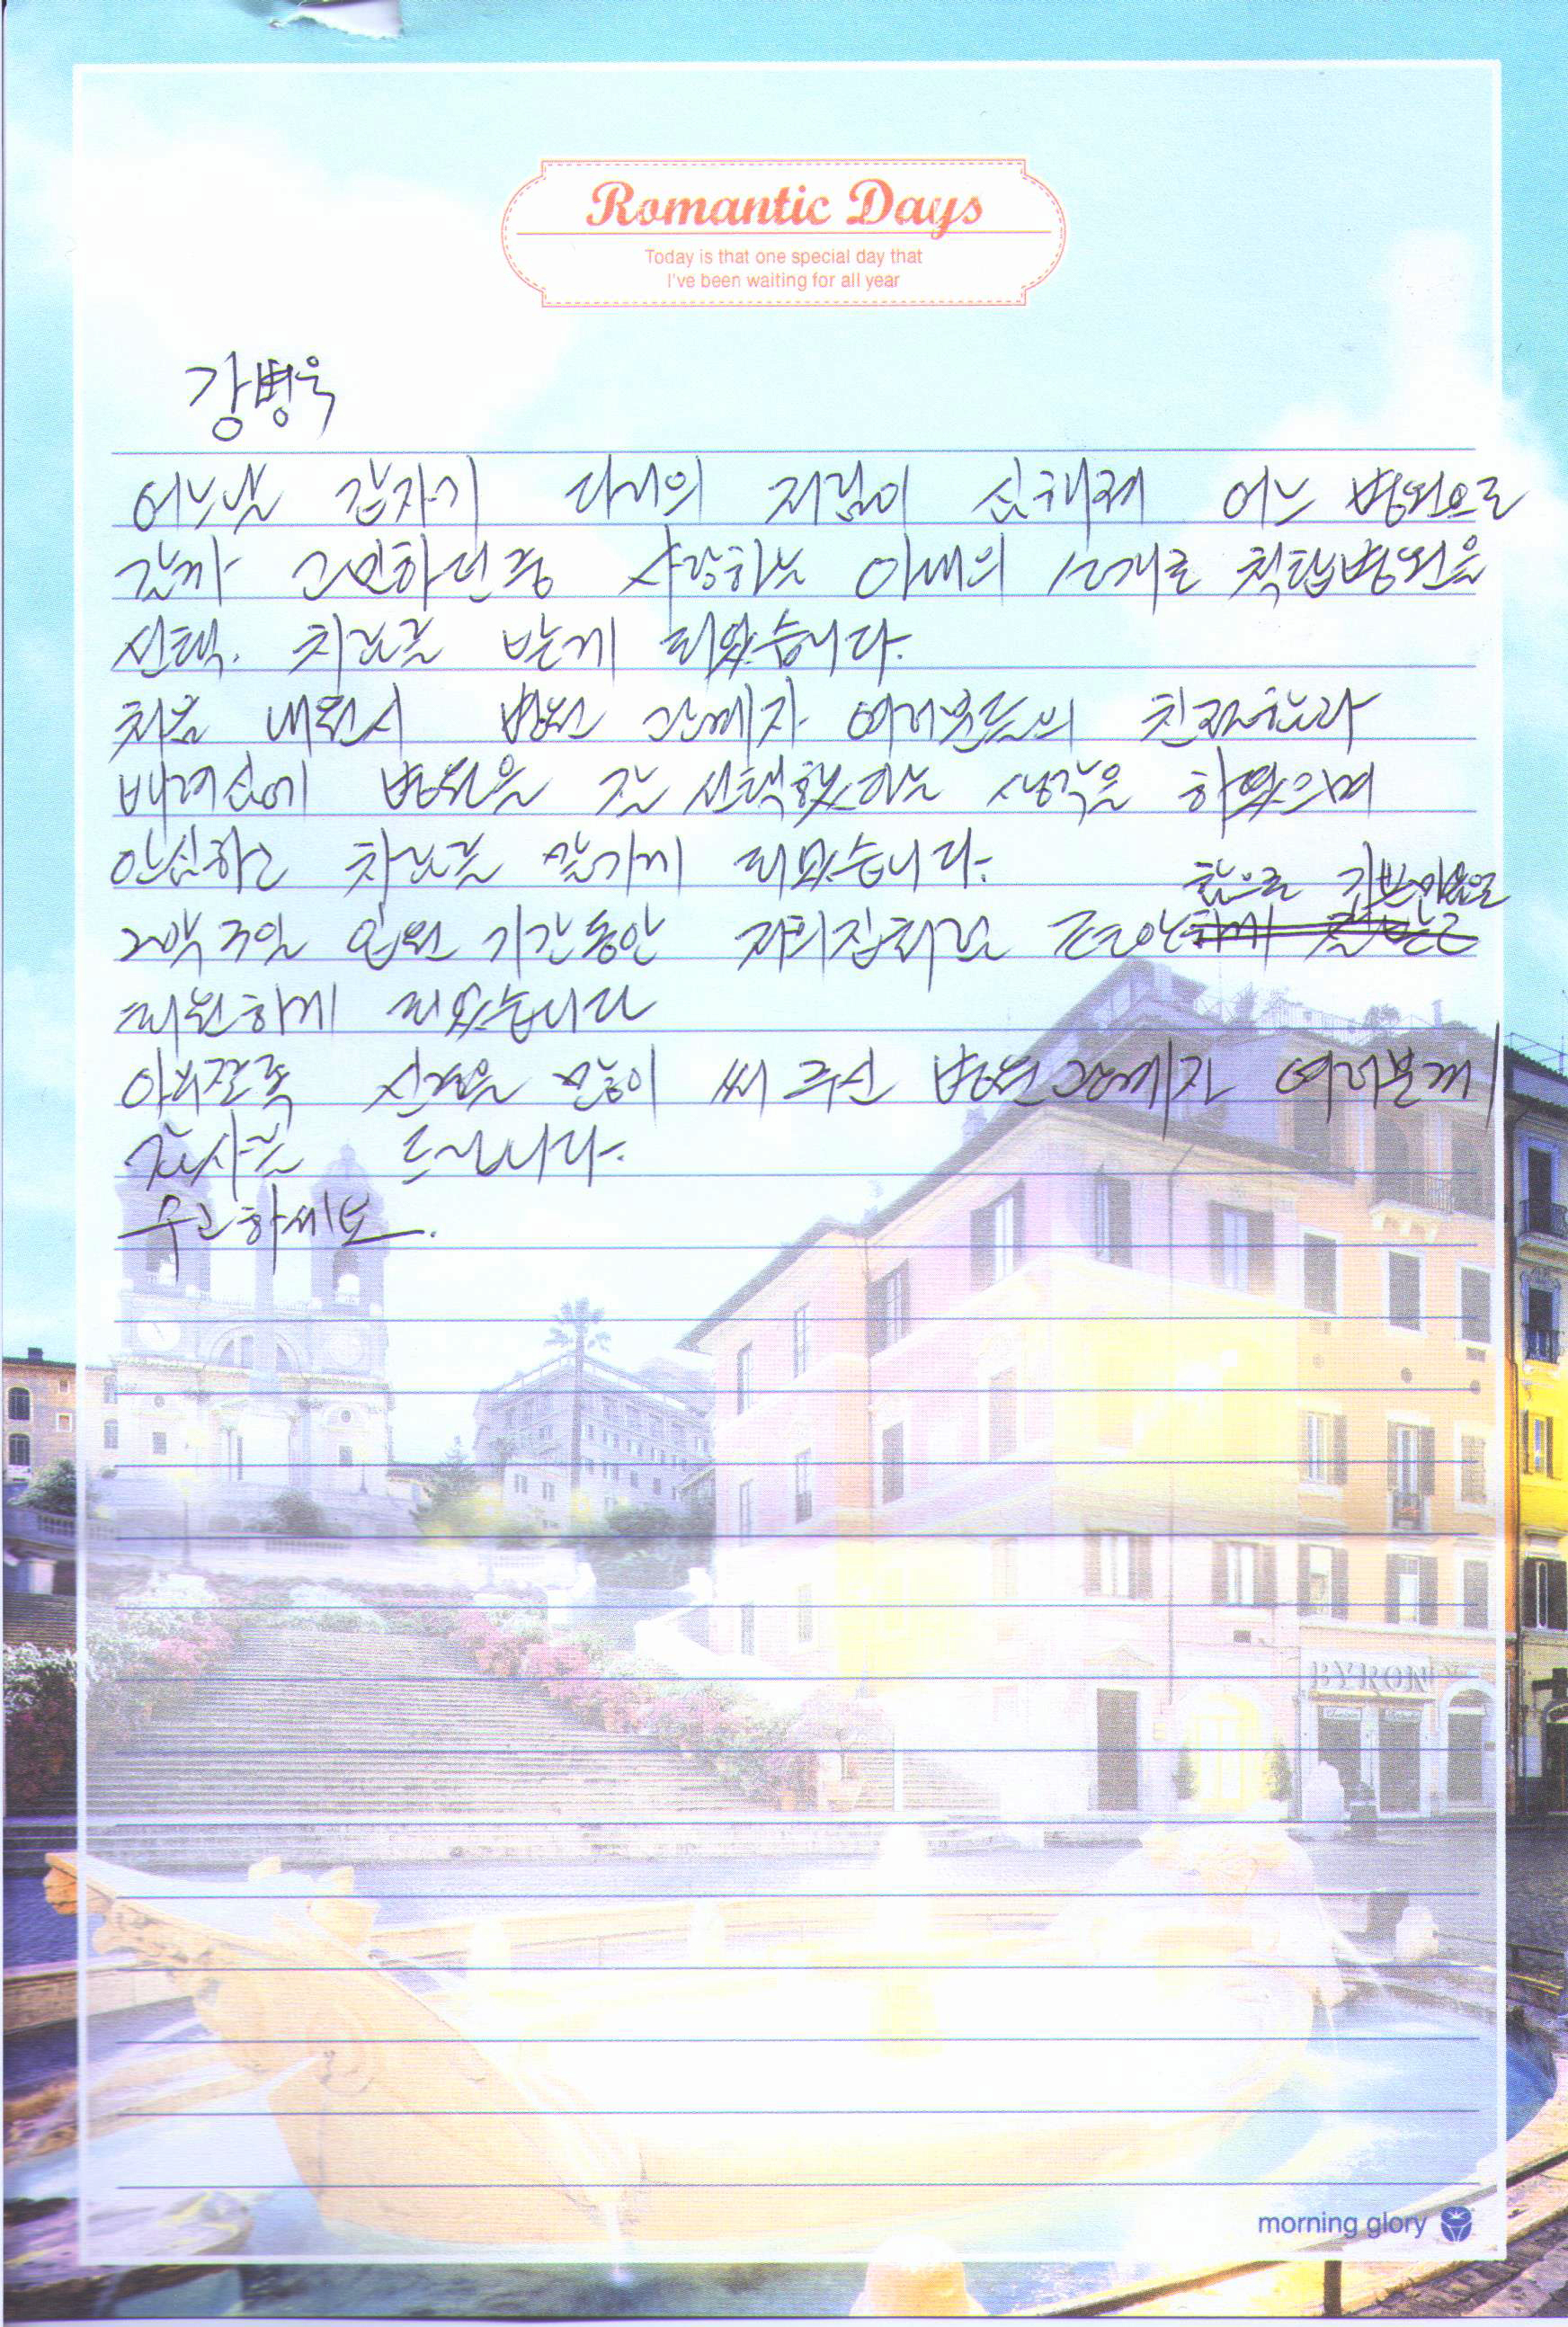 Romantic Days
Today is that one special day that
I've been waiting for all year
강병욱
어느날 갑자기 다리의 저림이 심해져 어느 병원으로
갈까 고민하던중 사랑하는 아내의 소개로 척탑병원을
선택. 치료를 받게 되었습니다.
처음 내원시 병원 관계자 여러분들의 친절함과
배려심에 병원을 잘 선택했다는 생각을 하였으며
안심하고 치료를 맡기게 되었습니다.
참으로 기쁜마음으로
2박3일 입원 기간동안 저의집처럼
퇴원하게 되었습니다
아무쪼록 신경을 많이 써 주신 병원관계자 여러분께
감사를 드립니다.
수고하세요.
BYRON
morning glory